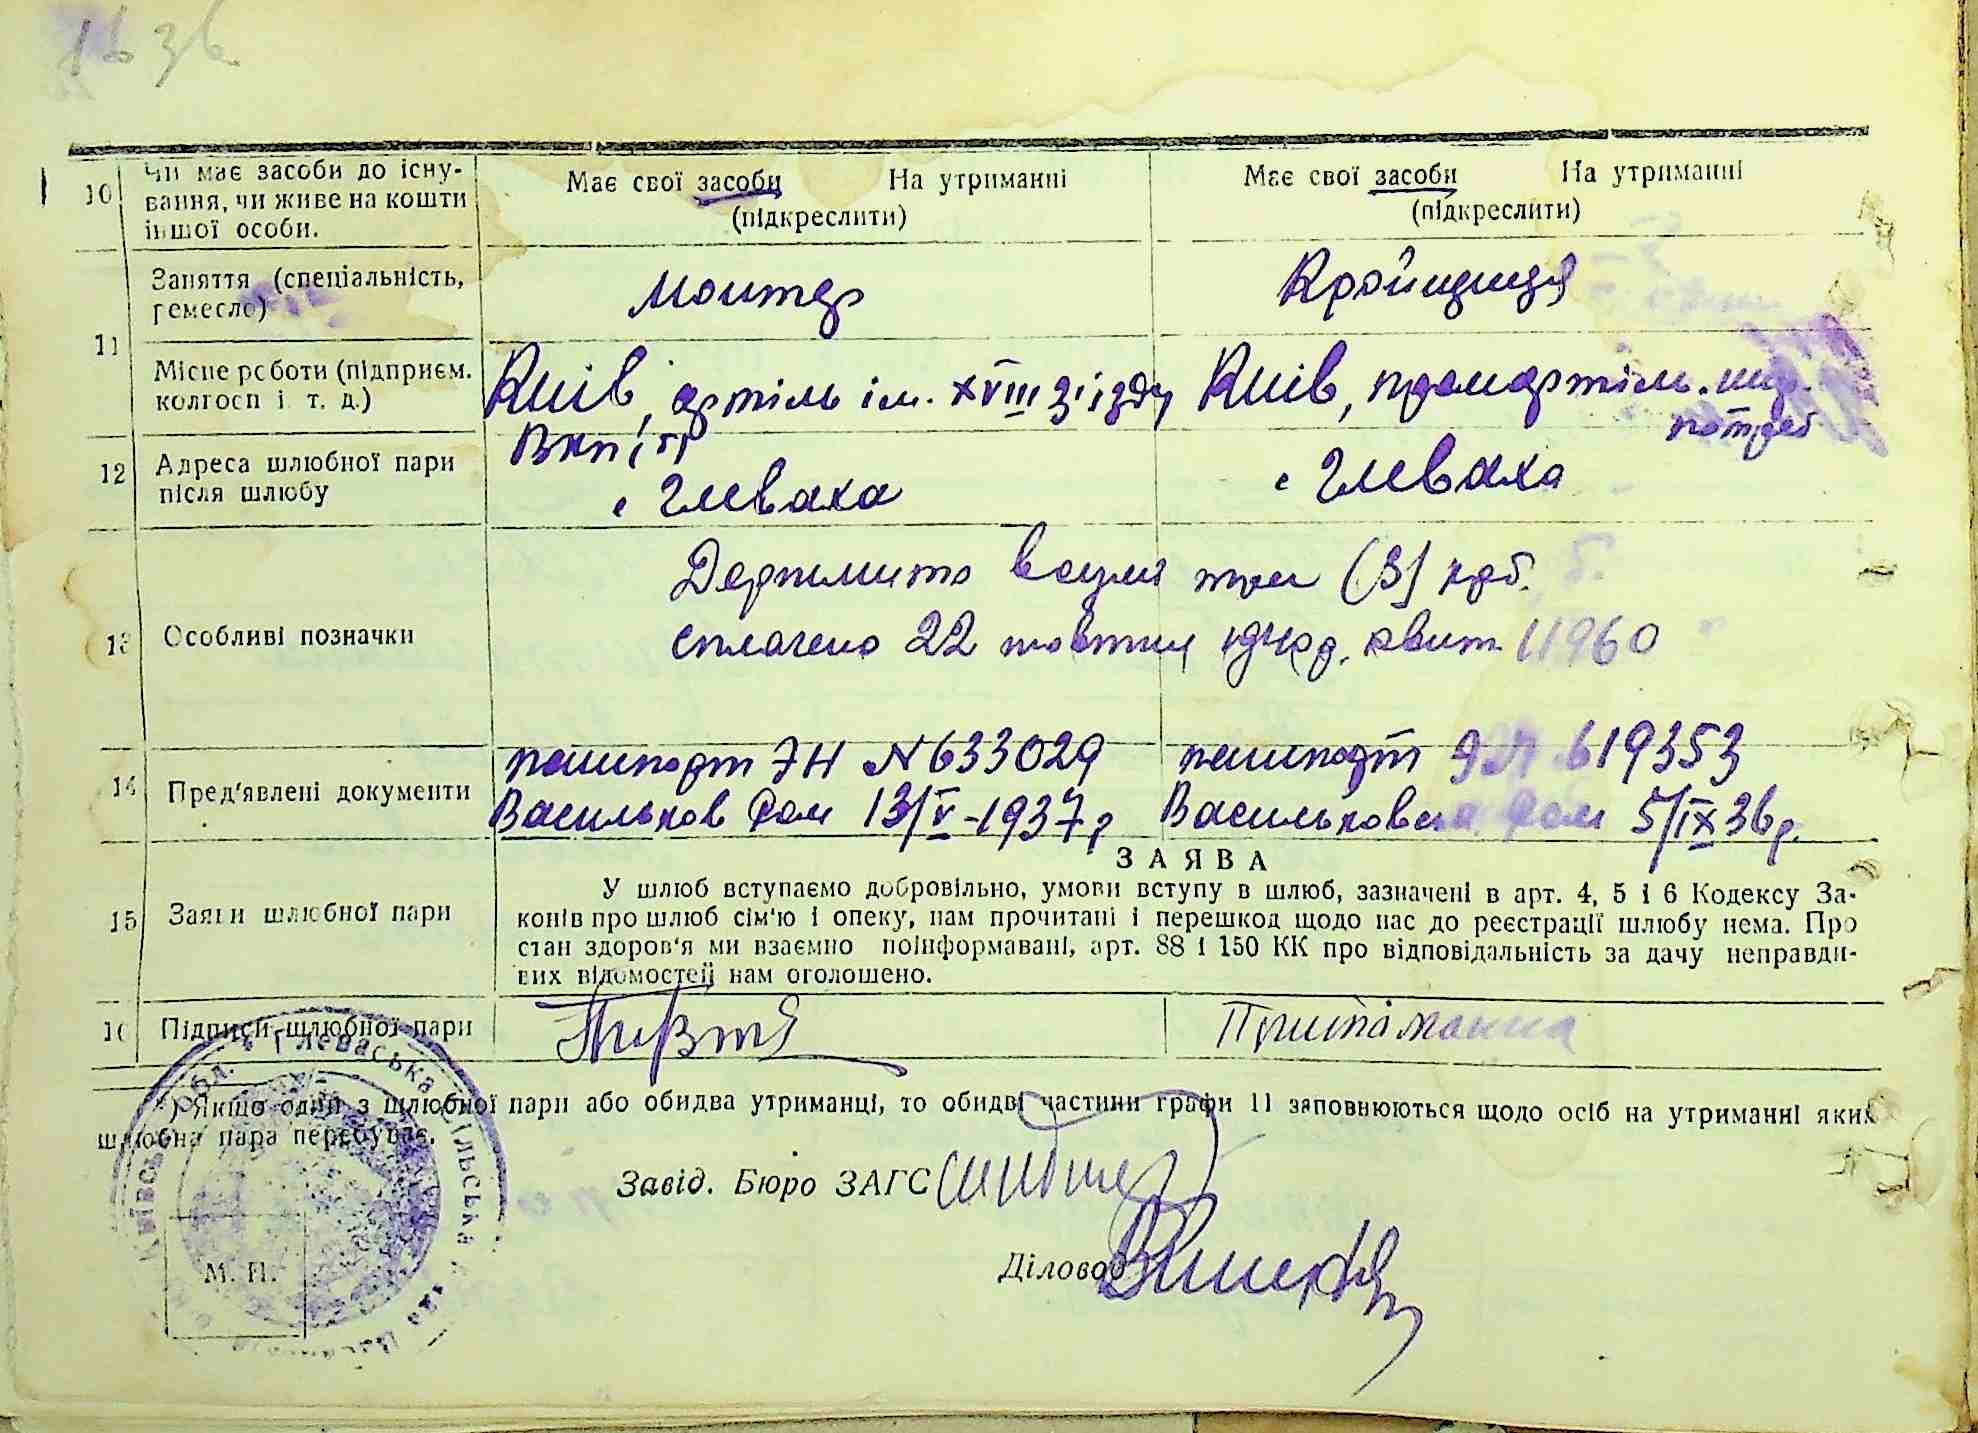 16 зв
10 Чи має засоби до існу-
вання, чи живе на кошти
іншої особи.
Має свої засоби На утриманні
(підкреслити)
Має свої засоби На утриманні
(підкреслити)
11 Заняття (спеціальність,
ремесло)
Монтер
Кройщиця
Місце роботи (підприєм.
колгосп і т. д.)
Київ, артіль ім. XVIII зʼізду
ВКП(б)
Київ, промартіль. шир.
потреб
12 Адреса шлюбної пари
після шлюбу
с Глеваха
с Глеваха
13 Особливі позначки
Держмито всумі три (3) крб.
сплачено 22 жовтня 1940р. квит 11960
14 Пред'явлені документи
пашпорт ЭН №633029
Васильков Рам 13/V-1937р
пашпорт 619353
Васильковська Рам 5/IX 36р.
15 Заяви шлюбної пари
ЗАЯВА
У шлюб вступаємо добровільно, умови вступу в шлюб, зазначені в арт. 4, 5 і 6 Кодексу За-
конів про шлюб сім'ю і опеку, нам прочитані і перешкод щодо нас до реєстрації шлюбу нема. Про
стан здоров'я ми взаємно поінформавані, арт. 88 і 150 КК про відповідальність за дачу неправди-
вих відомостей нам оголошено.
16 Підписи шлюбної пари
) Якщо один з шлюбної пари або обидва утриманці, то обидві частини графи 11 заповнюються щодо осіб на утриманні яких
шлюбна пара перебуває.
Завід. Бюро ЗАГС
Діловод
М. П.
Київська обл. Глеваська сільська рада